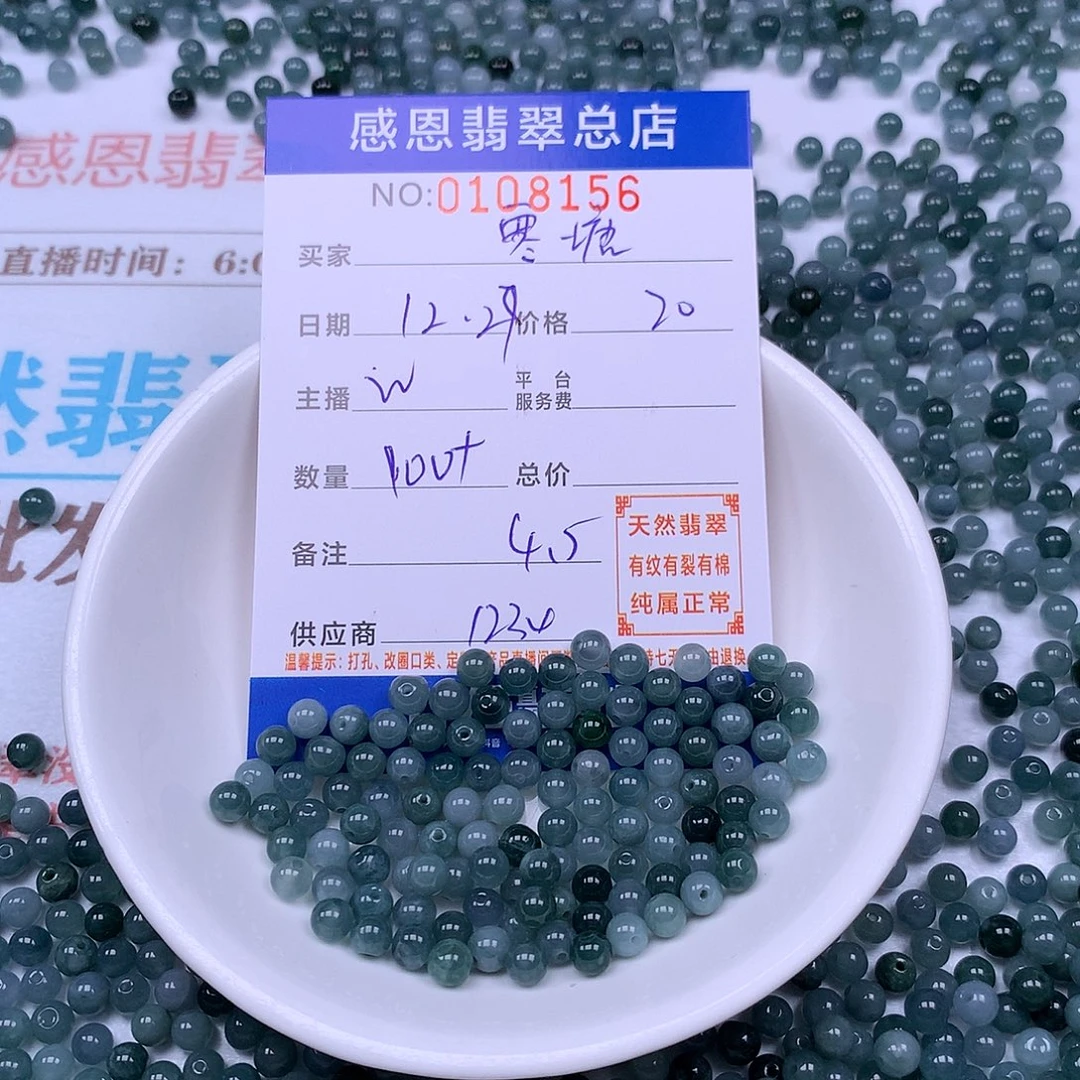 感恩翡翠总店
NO:0108156
买家 寒塘
日期 12.29 价格 20
主播 W
平台服务费
数量 100+ 总价
备注 4.5
供应商 1234
天然翡翠
有纹有裂有棉
纯属正常
温馨提示：打孔、改圈口类、定
由退换
感恩翡
直播时间：6:0
然翡
批发